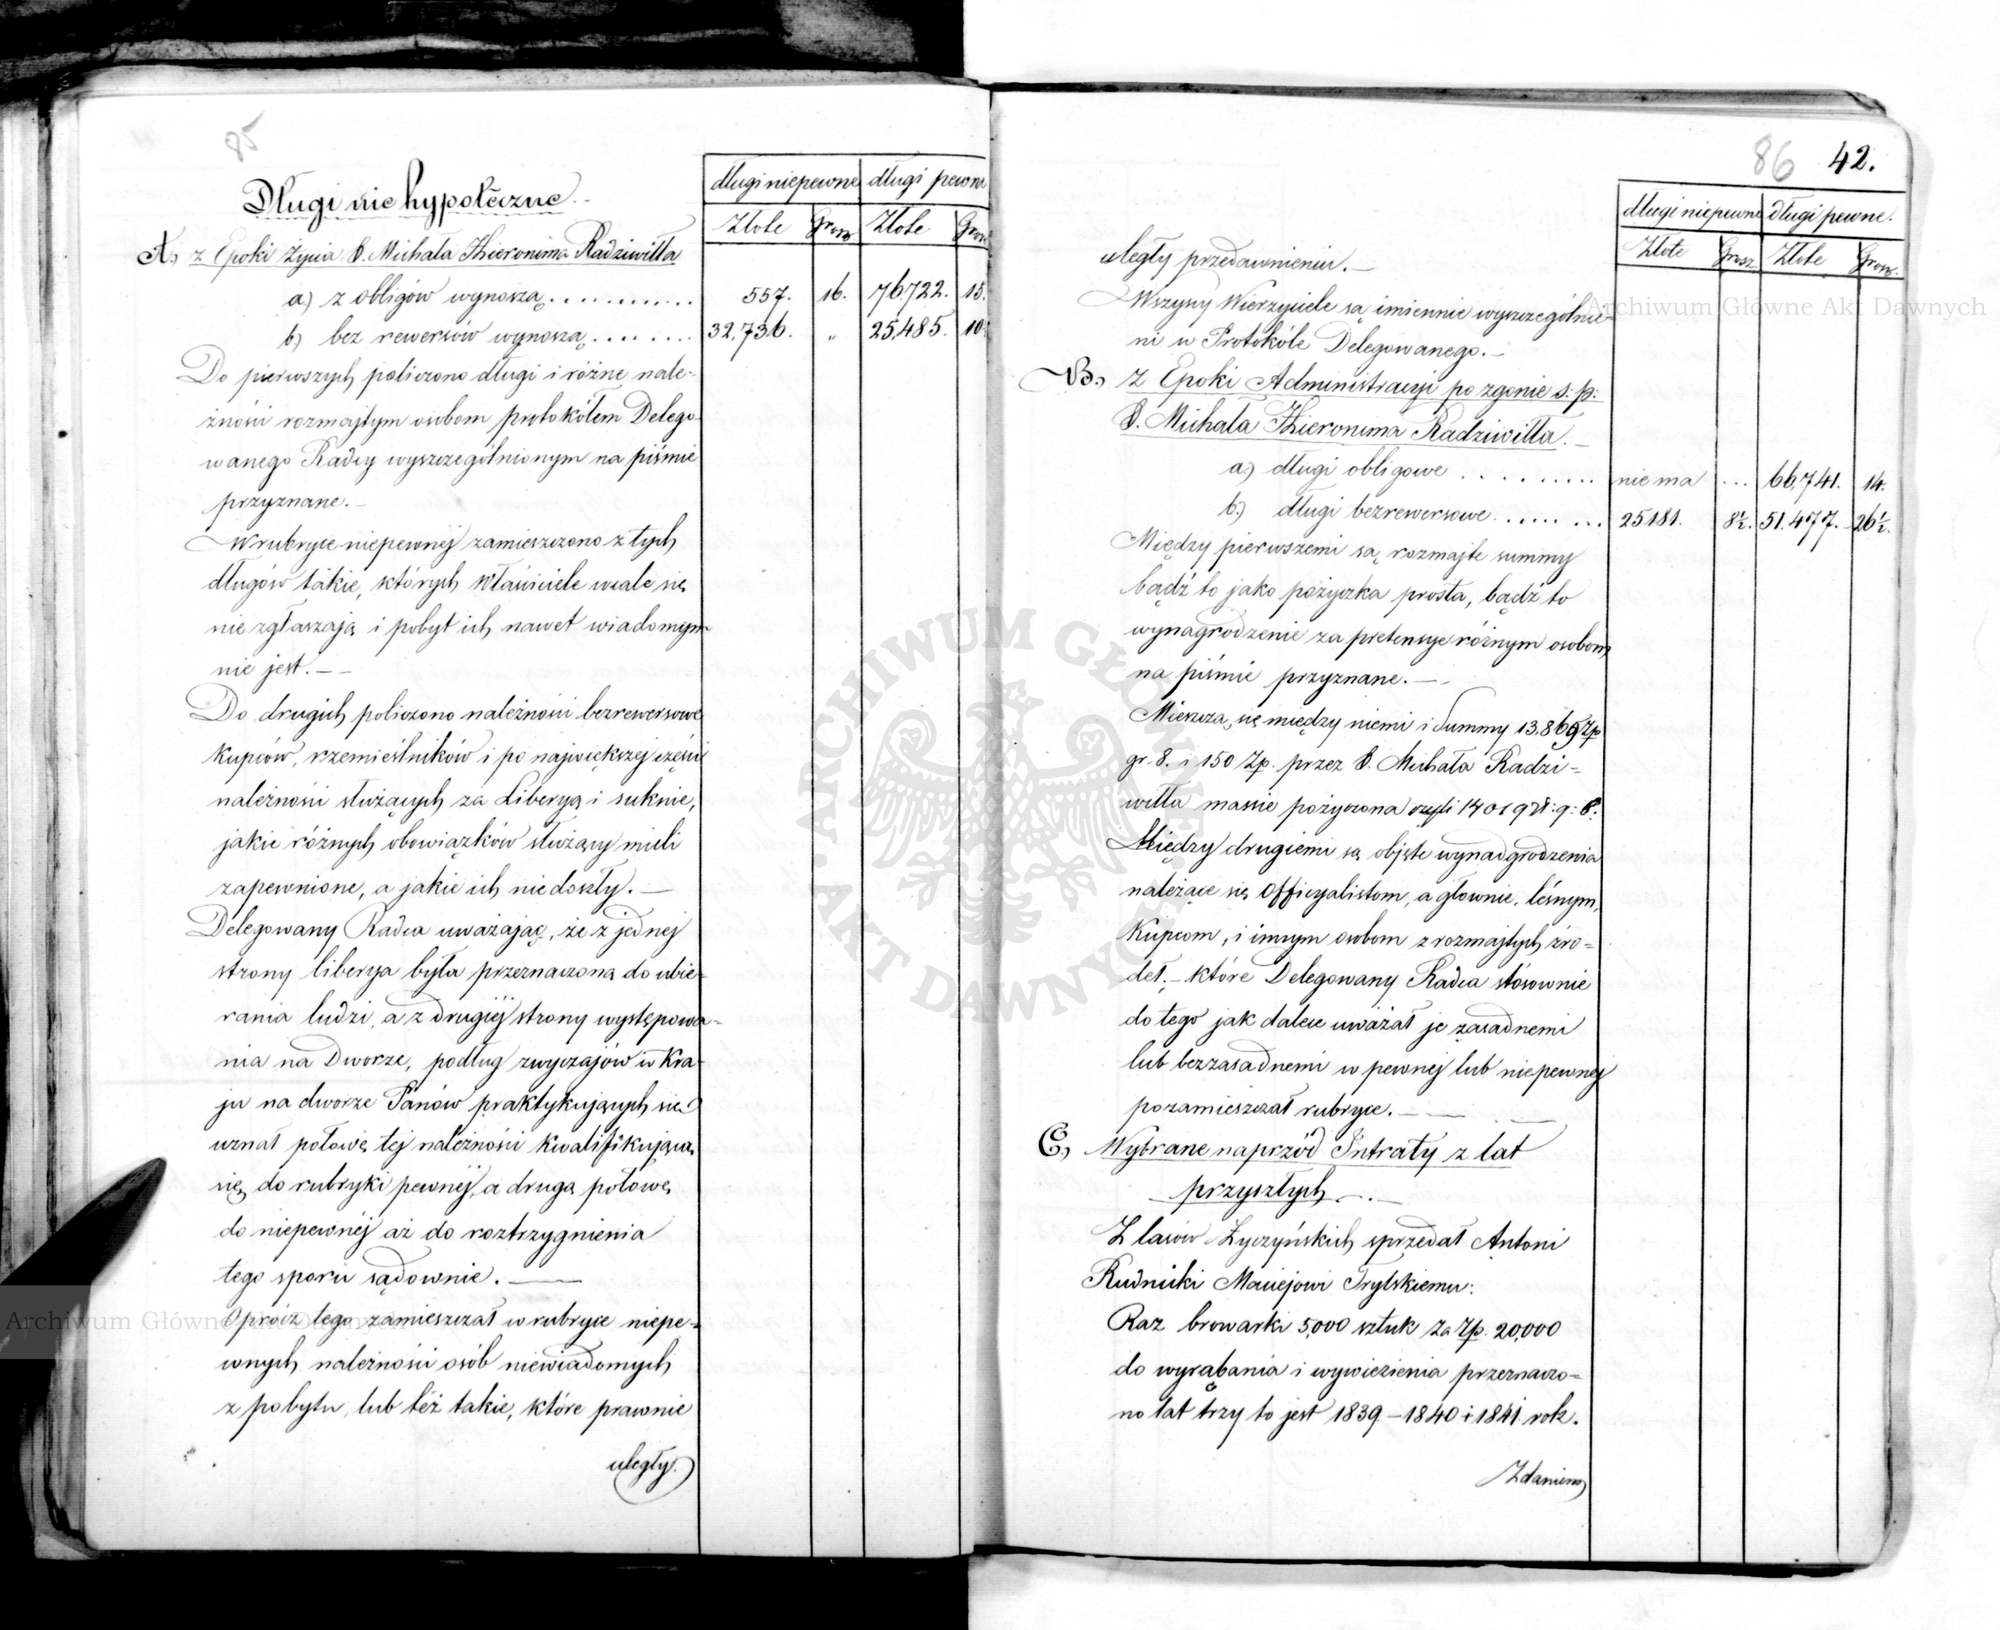 85
długi niepewne długi pewne
Złote Grosz Złote Grosz
Długi nie hypoteczne
A, z Epoki życia X. Michała Hieronima Radziwiłła
a) z obligów wynoszą............ 557. 16. 76.722. 15.
b) bez rewersów wynoszą........ 32,736. „ 25,485. 10
Do pierwszych policzono długi i różne nale-
żności rozmajtym osobom protokółem Delego-
wanego Radcy wyszczególnionym na piśmie
przyznane.—
W rubryce niepewnéj zamieszczono z tych
długów takie, których Właściciele wcale się
nie zgłaszają i pobyt ich nawet wiadomym
nie jest.—
Do drugich policzono należności bezrewersowe
kupców, rzemieślników i po największej części
należności służących za Liberyą i suknie,
jakie różnych obowiązków służący mieli
zapewnione, a jakie ich niedoszły.—
Delegowany Radca uważając, że z jednej
strony liberya była przeznaczoną do ubie-
rania ludzi, a z drugiéj strony występowa-
nia na Dworze, podług zwyczajów w Kra-
ju na dworze Panów praktykujących się
uznał połowę tej należności kwalifikującą
się do rubryki pewnéj, a drugą połowę
do niepewnéj aż do roztrzygnienia
tego sporu sądownie.—
Oprócz tego zamieszczał w rubryce niepe-
wnych należności osób niewiadomych
z pobytu, lub też takie, które prawnie
uległy.
86 42.
długi niepewne długi pewne.
Złote Grosz Złote Grosz.
uległy przedawnieniu.—
Wszyscy Wierzyciele są imiennie wyszczególnie-
ni w Protokóle Delegowanego.—
B, Z Epoki Administracyi po zgonie s: p:
X. Michała Hieronima Radziwiłła.—
a) długi obligowe .......... nie ma ... 66,741. 14.
b) długi bezrewersowe......... 25181. 8½. 51.477. 26½.
Między pierwszemi są rozmajte summy
bądź to jako pożyczka prosta, bądź to
wynagrodzenie za pretensye różnym osobom
na piśmie przyznane.—
Mieszczą się między niemi i Summy 13.869 Zp
gr. 8. i 150 Zp. przez X. Michała Radzi-
wiłła massie pożyczona czyli 14019 zł: g: 8.
Między drugiemi są objęte wynadgrodzenia
należące się Officyalistom, a głownie, leśnym,
Kupcom, i innym osobom z rozmajtych źró-
deł,– które Delegowany Radca stósownie
do tego jak dalece uważał je zasadnemi
lub bezzasadnemi w pewnej lub niepewnej
pozamieszczał rubryce.—
C, Wybrane naprzód Intraty z lat
przyszłych.—
Z lasów Życzyńskich sprzedał Antoni
Rudnicki Maciejowi Trylskiemu:
Raz browarki 5,000 sztuk za Zp. 20,000
do wyrąbania i wywiezienia przeznaczo-
no lat trzy to jest 1839 – 1840 i 1841 rok.
Zdaniem
Archiwum Główne Akt Dawnych
Archiwum Główne Akt Dawnych
ARCHIWUM GŁÓWNE AKT DAWNYCH